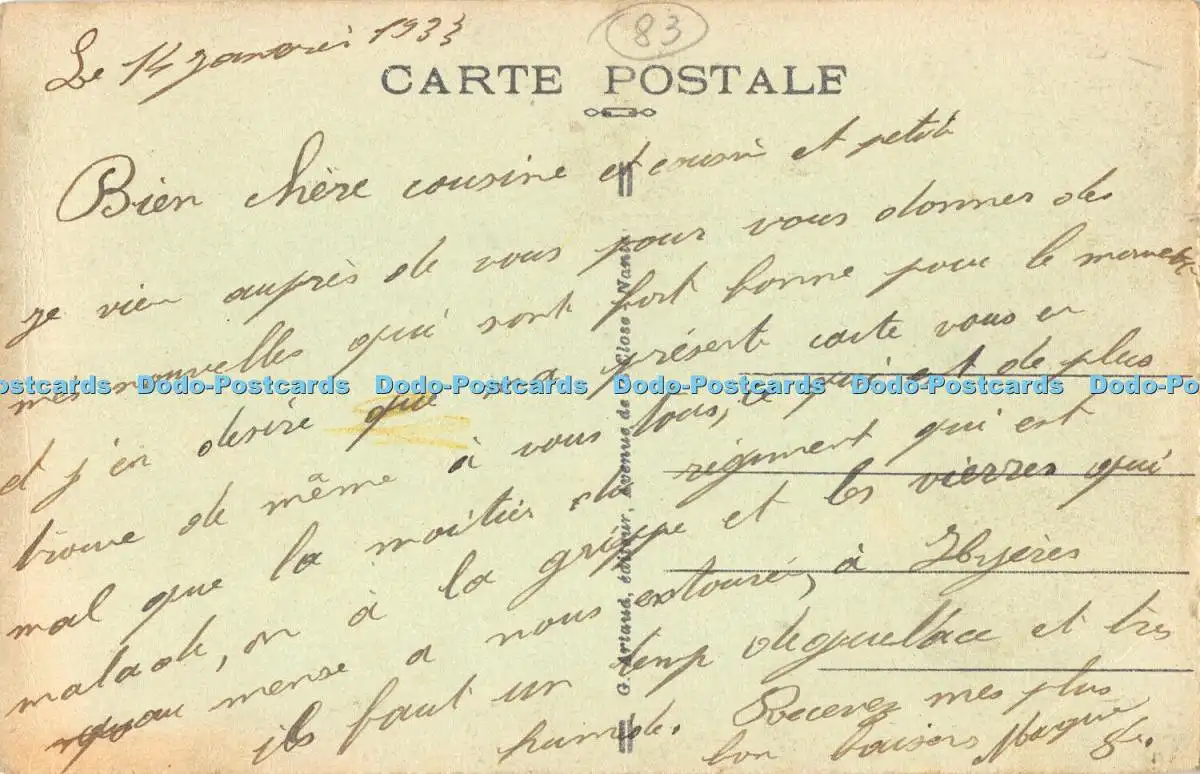 Le 14 Janvrier 1933
83
CARTE POSTALE
Bien chère cousine et cousin et petite
je vien auprès de vous pour vous donner des
mes nouvelles qui sont fort bonne pour le moment
et j'en desire que ma présente carte vous en
trouve de même à vous tous, ce qui est de plus
mal que la moitiés du régiment qui est
malade, on à la grippe et les vierres qui
mense a nous entouré, à Hyères
ils faut un temp degueullace et très
humide. Recevez mes plus
bon baisers
G. Artaud, éditeur, Avenue de la Close - Nantes
Dodo-Postcards Dodo-Postcards Dodo-Postcards Dodo-Postcards Dodo-Postcards Dodo-Postcards Dodo-Postcards